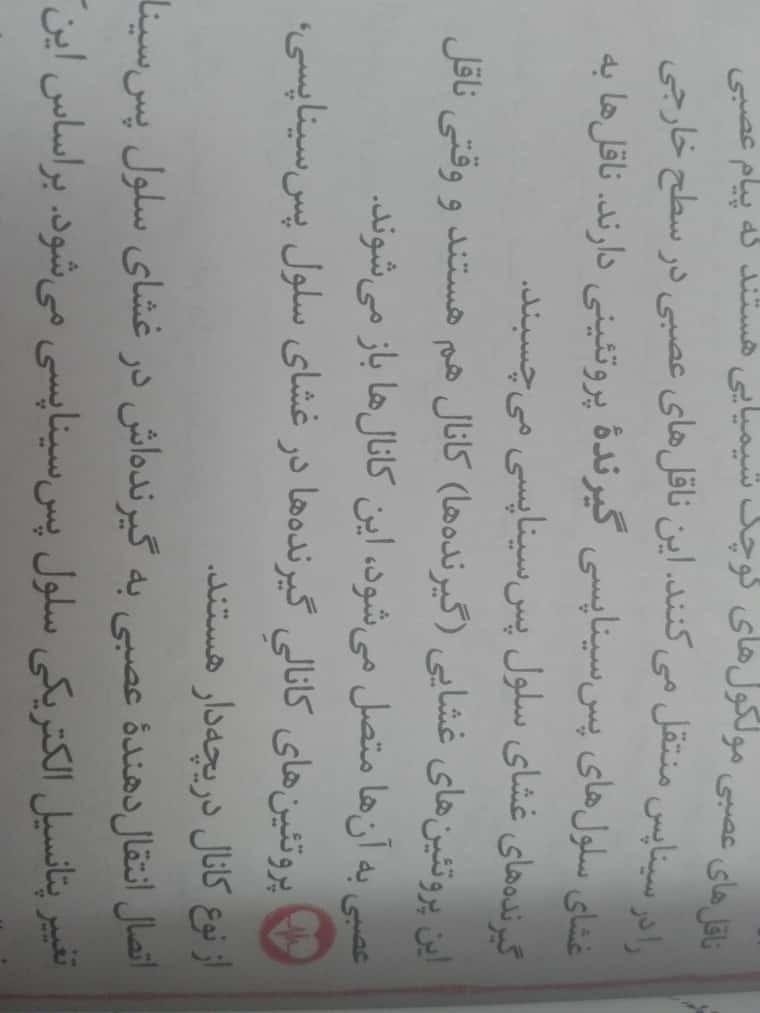 ناقل‌های عصبی مولکول‌های کوچک شیمیایی هستند که پیام عصبی
را در سیناپس منتقل می‌کنند. این ناقل‌های عصبی در سطح خارجی
غشای سلول‌های پس‌سیناپسی گیرندهٔ پروتئینی دارند. ناقل‌ها به
گیرنده‌های غشای سلول پس‌سیناپسی می‌چسبند.
این پروتئین‌های غشایی (گیرنده‌ها) کانال هم هستند و وقتی ناقل
عصبی به آن‌ها متصل می‌شود، این کانال‌ها باز می‌شوند.
پروتئین‌های کانالیِ گیرنده‌ها در غشای سلول پس‌سیناپسی،
از نوع کانال دریچه‌دار هستند.
اتصال انتقال‌دهندهٔ عصبی به گیرنده‌اش در غشای سلول پس‌سینا
تغییر پتانسیل الکتریکی سلول پس‌سیناپسی می‌شود. براساس این